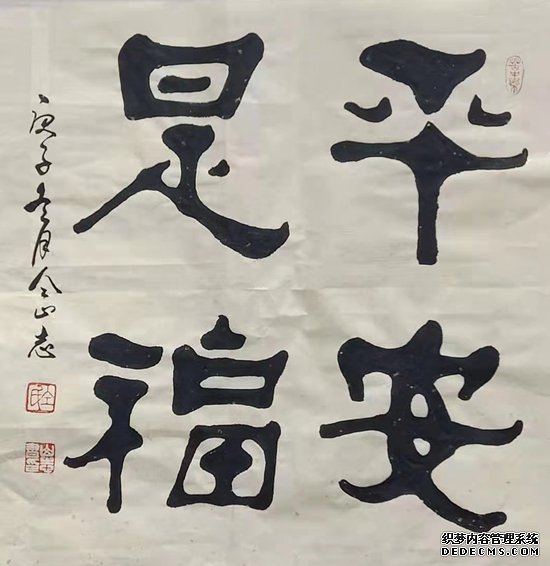 平安
是福
庚子冬月金山志
织梦内容管理系统
DEDECMS.COM